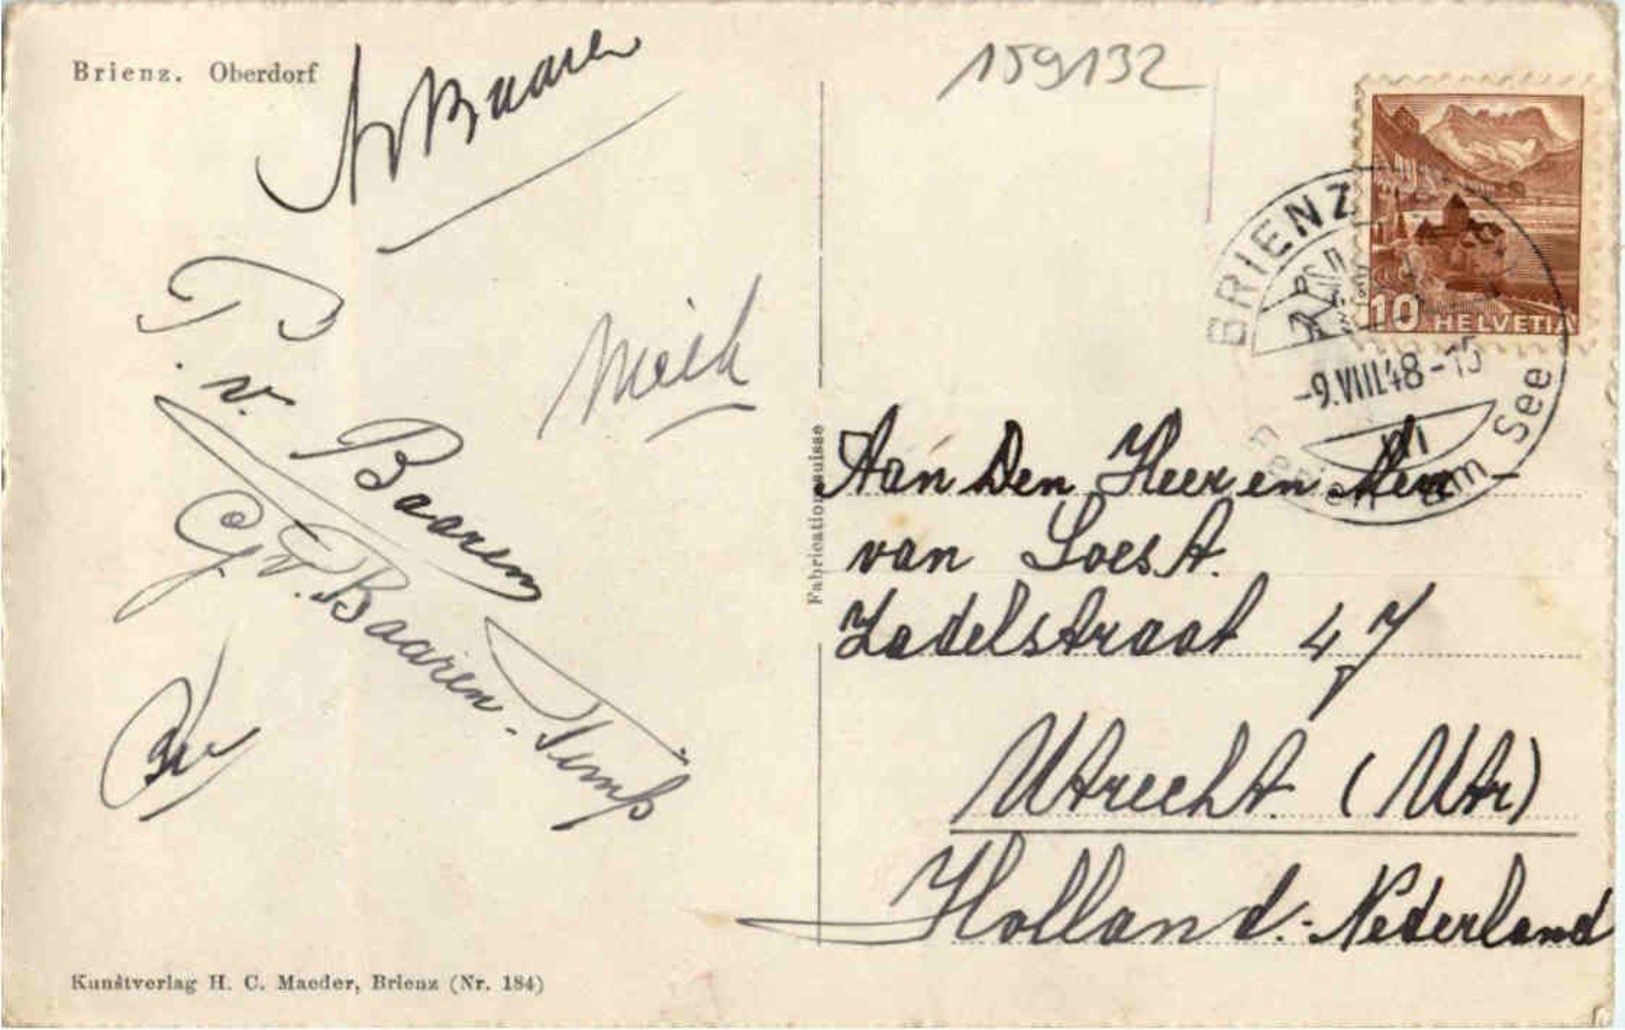 Brienz. Oberdorf
159132
v Baaren
P. v. Baaren
G. v. Baaren-
Kunstverlag H. C. Maeder, Brienz (Nr. 184)
Fabrication suisse
10 HELVETIA
BRIENZ
-9.VIII.48-15
am See
Aan Den Heer en Mevr
van Soest.
Zadelstraat 47
Utrecht (Utr)
Holland.-Nederland